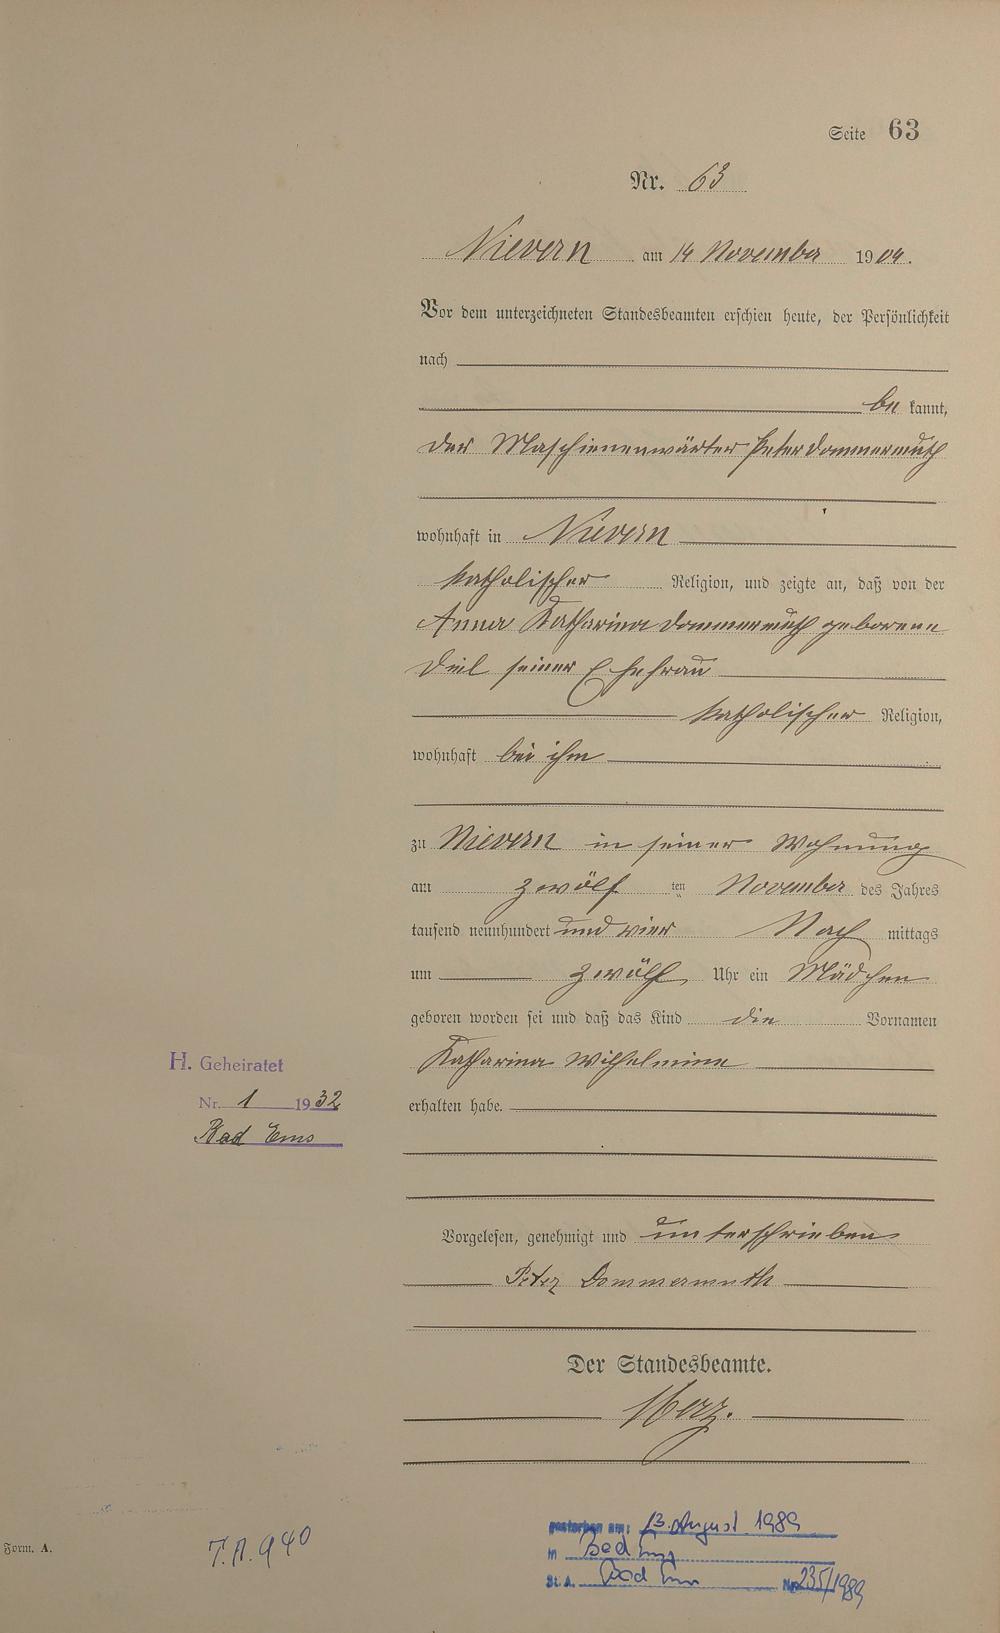 Seite 63
Nr. 63
Nievern am 14 November 1904.
Vor dem unterzeichneten Standesbeamten erschien heute, der Persönlichkeit
nach
be kannt,
der Maschienenwärter Peter Dommermuth
wohnhaft in Nievern
katholischer Religion, und zeigte an, daß von der
Anna Katharina Dommermuth geborene
Diel seiner Ehefrau
katholischer Religion,
wohnhaft bei ihm
zu Nievern in seiner Wohnung
am zwölf ten November des Jahres
tausend neunhundert und vier Nach mittags
um zwölf Uhr ein Mädchen
geboren worden sei und daß das Kind die Vornamen
Katharina Wilhelmine
H. Geheiratet
Nr. 1 1932
Bad Ems
erhalten habe.
Vorgelesen, genehmigt und unterschrieben
Peter Dommermuth
Der Standesbeamte.
Merz.
gestorben am: 13. August 1989
in Bad Ems
St. A. Bad Ems Nr. 235/1989
Form. A.